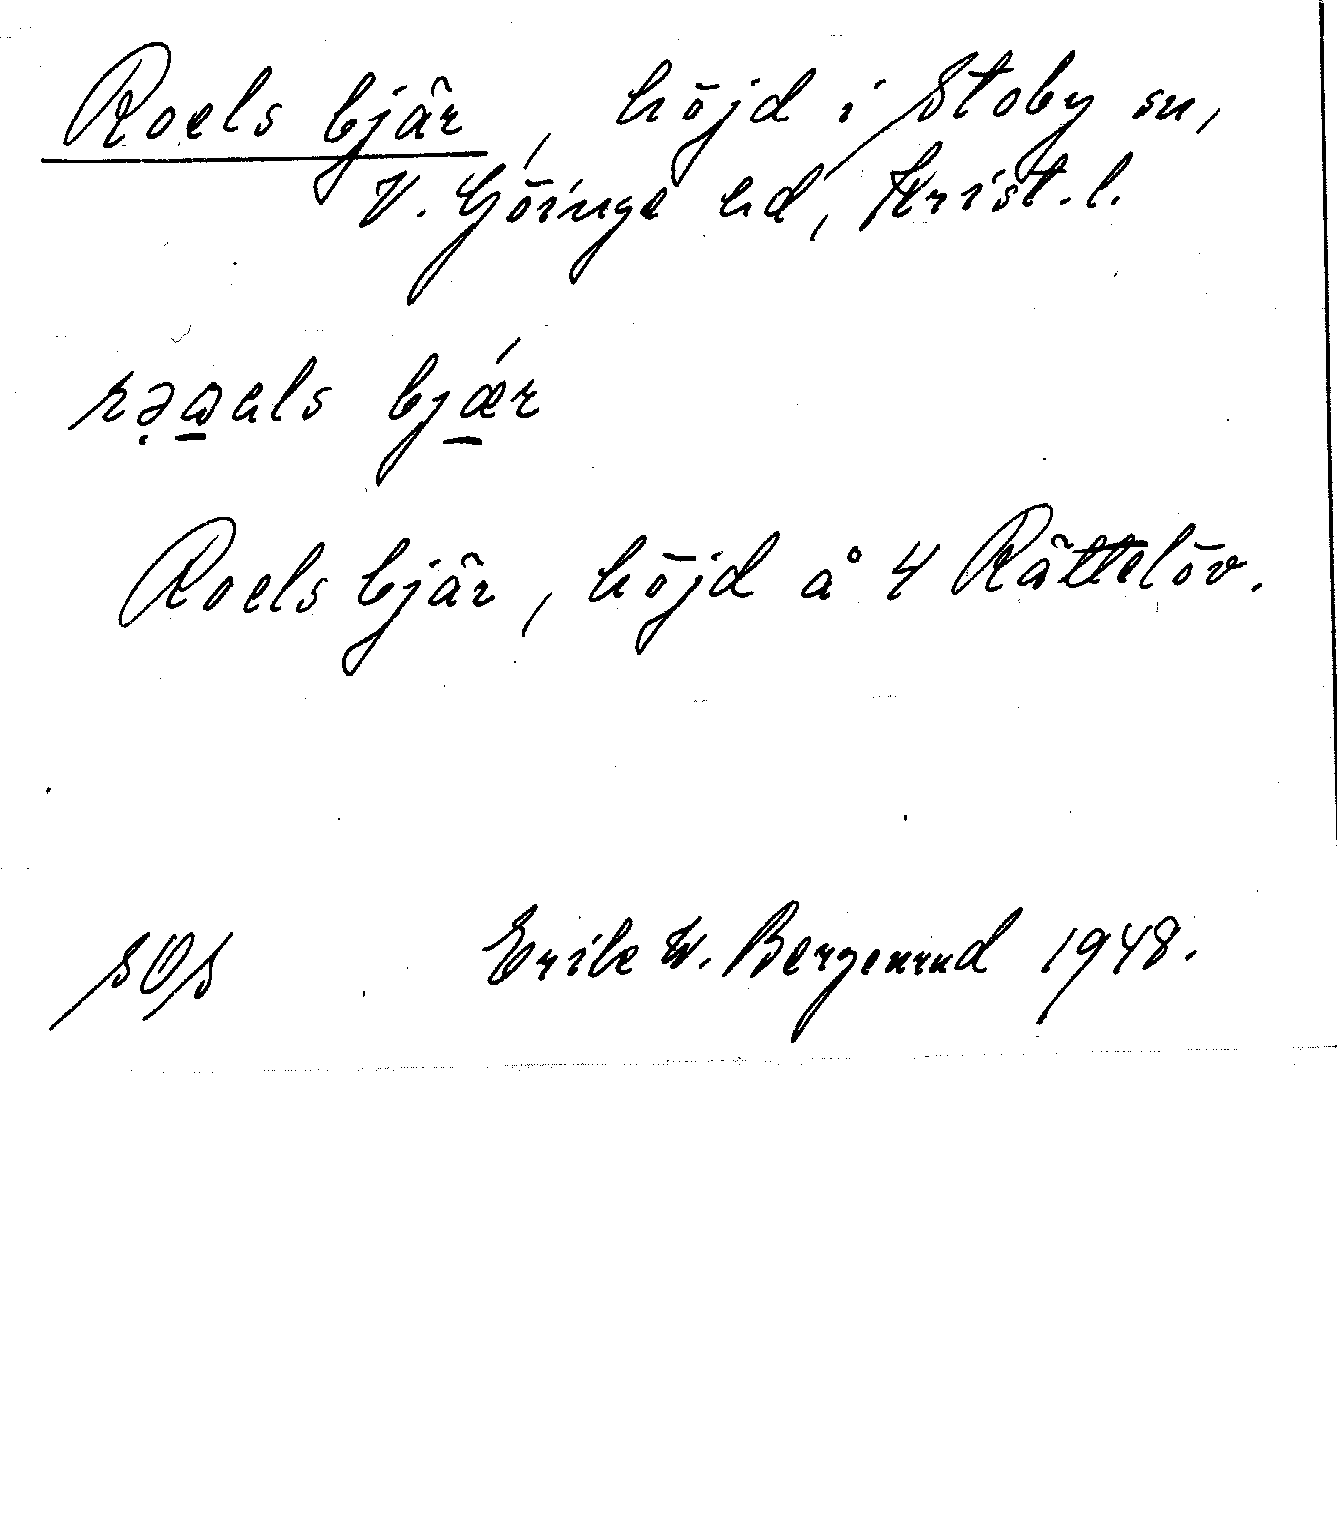 Roels bjär, höjd i Stoby sn,
V. Göinge hd, Krist. l.
bjǽr
Roels bjär, höjd å 4 Rättelöv.
SOS Erik W. Bergenrud 1948.